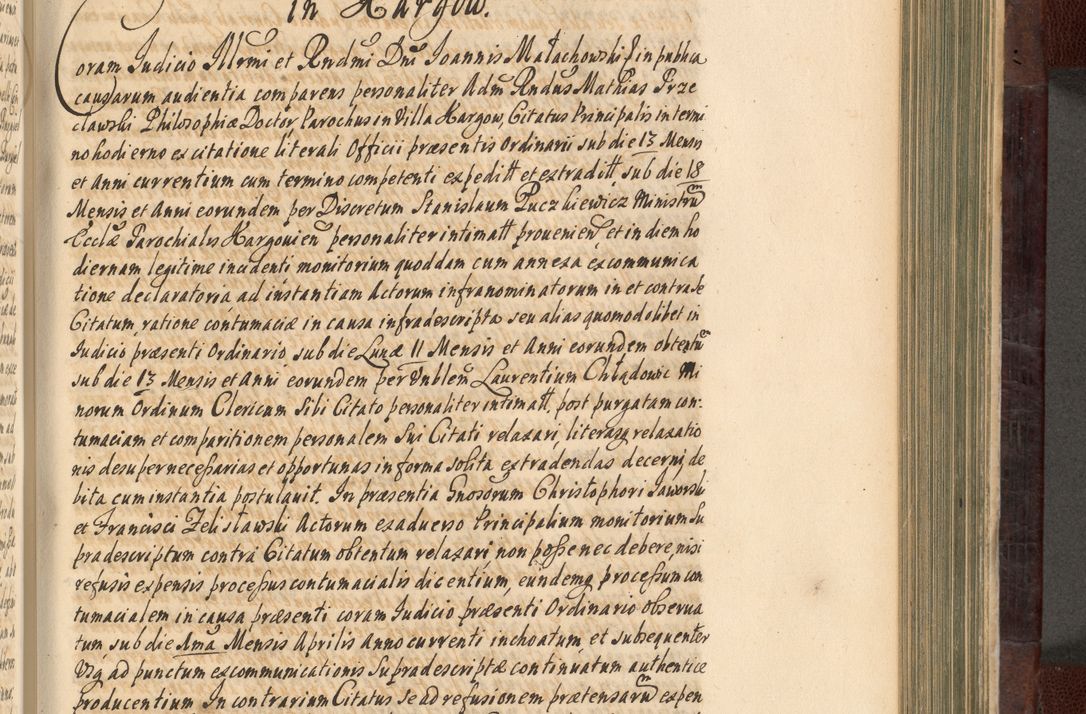 in Hargow.
Coram Judicio Illrmi et Rndmi Dni Joannis Małachowski E in publica
causarum audientia comparens personaliter Adm Rndus Mathias Prze
clawski Philosophiæ Doctor Parochus in Villa Hargow, Citatus Principalis in termi
no hodierno ex citatione literali Officii præsentis Ordinarii sub die 13 Mensis
et Anni currentium cum termino competenti expeditt et extraditt sub die 18
Mensis et Anni eorundem per Discretum Stanislaum Puczkiewicz Ministrum
Ecclæ Parochialis Hargovien personaliter intimatt provenien et in diem ho
diernam legitime incidenti monitorium quoddam cum annexa excommunica
tione declaratoria ad instantiam Actorum infranominatorum in et contra se
Citatum, ratione contumaciæ in causa infradescripta seu alias quomodolibet in
Judicio præsenti Ordinario sub die Lunæ 11 Mensis et Anni eorundem obtentum
sub die 13 Mensis et Anni eorundem per Vnblen Laurentium Chładowic Mi
norum Ordinum Clericum Sibi Citato personaliter intimatt, post purgatam con:
tumaciam et comparitionem personalem Sui Citati relaxari, literasq relaxatio
nis desuper necessarias et opportunas in forma solita extradendas decerni, de
bita cum instantia postulavit. In præsentia Gnosorum Christophori Jaworski
et Francisci Zelisławski Actorum ex adverso Principalium monitorium Su
pradescriptum contra Citatum obtentum relaxari non posse nec debere nisi
refusis expensis processus contumacialis dicentium, eundemq processum con
tumacialem in causa præsenti coram Judicio præsenti Ordinario observa
tum sub die Ama Mensis Aprilis Anno currenti inchoatum, et subsequenter
Vsq ad punctum excommunicationis Supradescriptæ continuatum authentice
producentium In contrarium Citatus se ad refusionem prætensarum expen